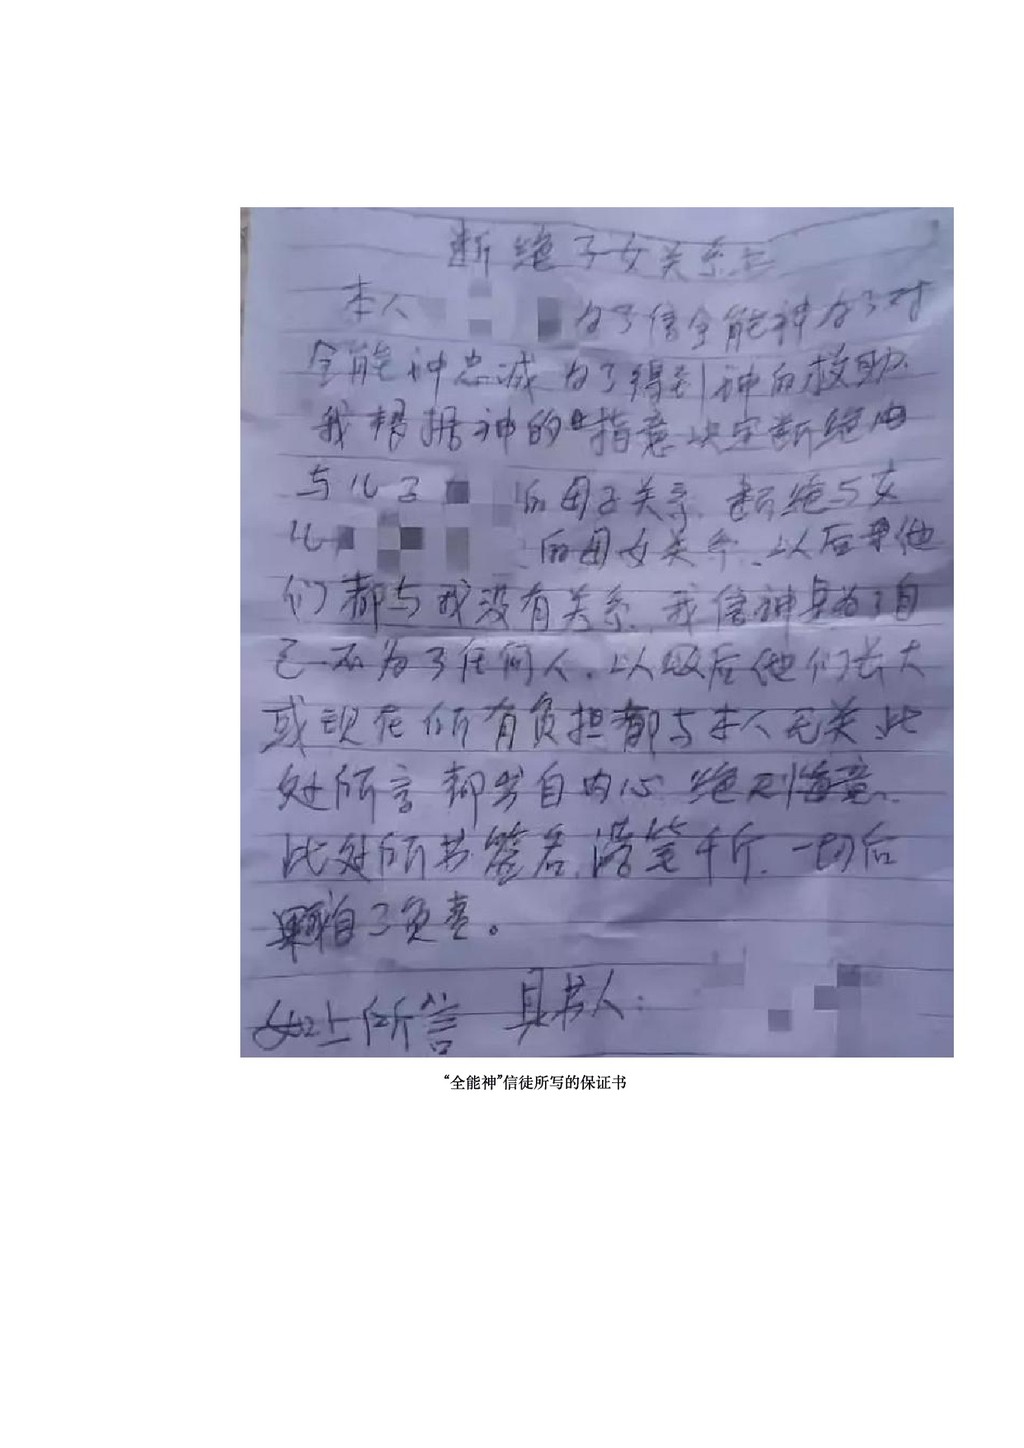 断绝子女关系书
本人 为了信全能神为了对
全能神忠诚为了得到神的救助
我根据神的指意决定断绝
与儿子 的母子关系.断绝与女
儿 的母女关系.以后 他
们都与我没有关系.我信神是为了自
己不为了任何人.以后他们长大
或现在所有负担都与本人无关此
处所言都出自内心绝不悔意.
此处所书签名,落笔千斤.一切后
果自己负责。
如上所言 具书人:
“全能神”信徒所写的保证书